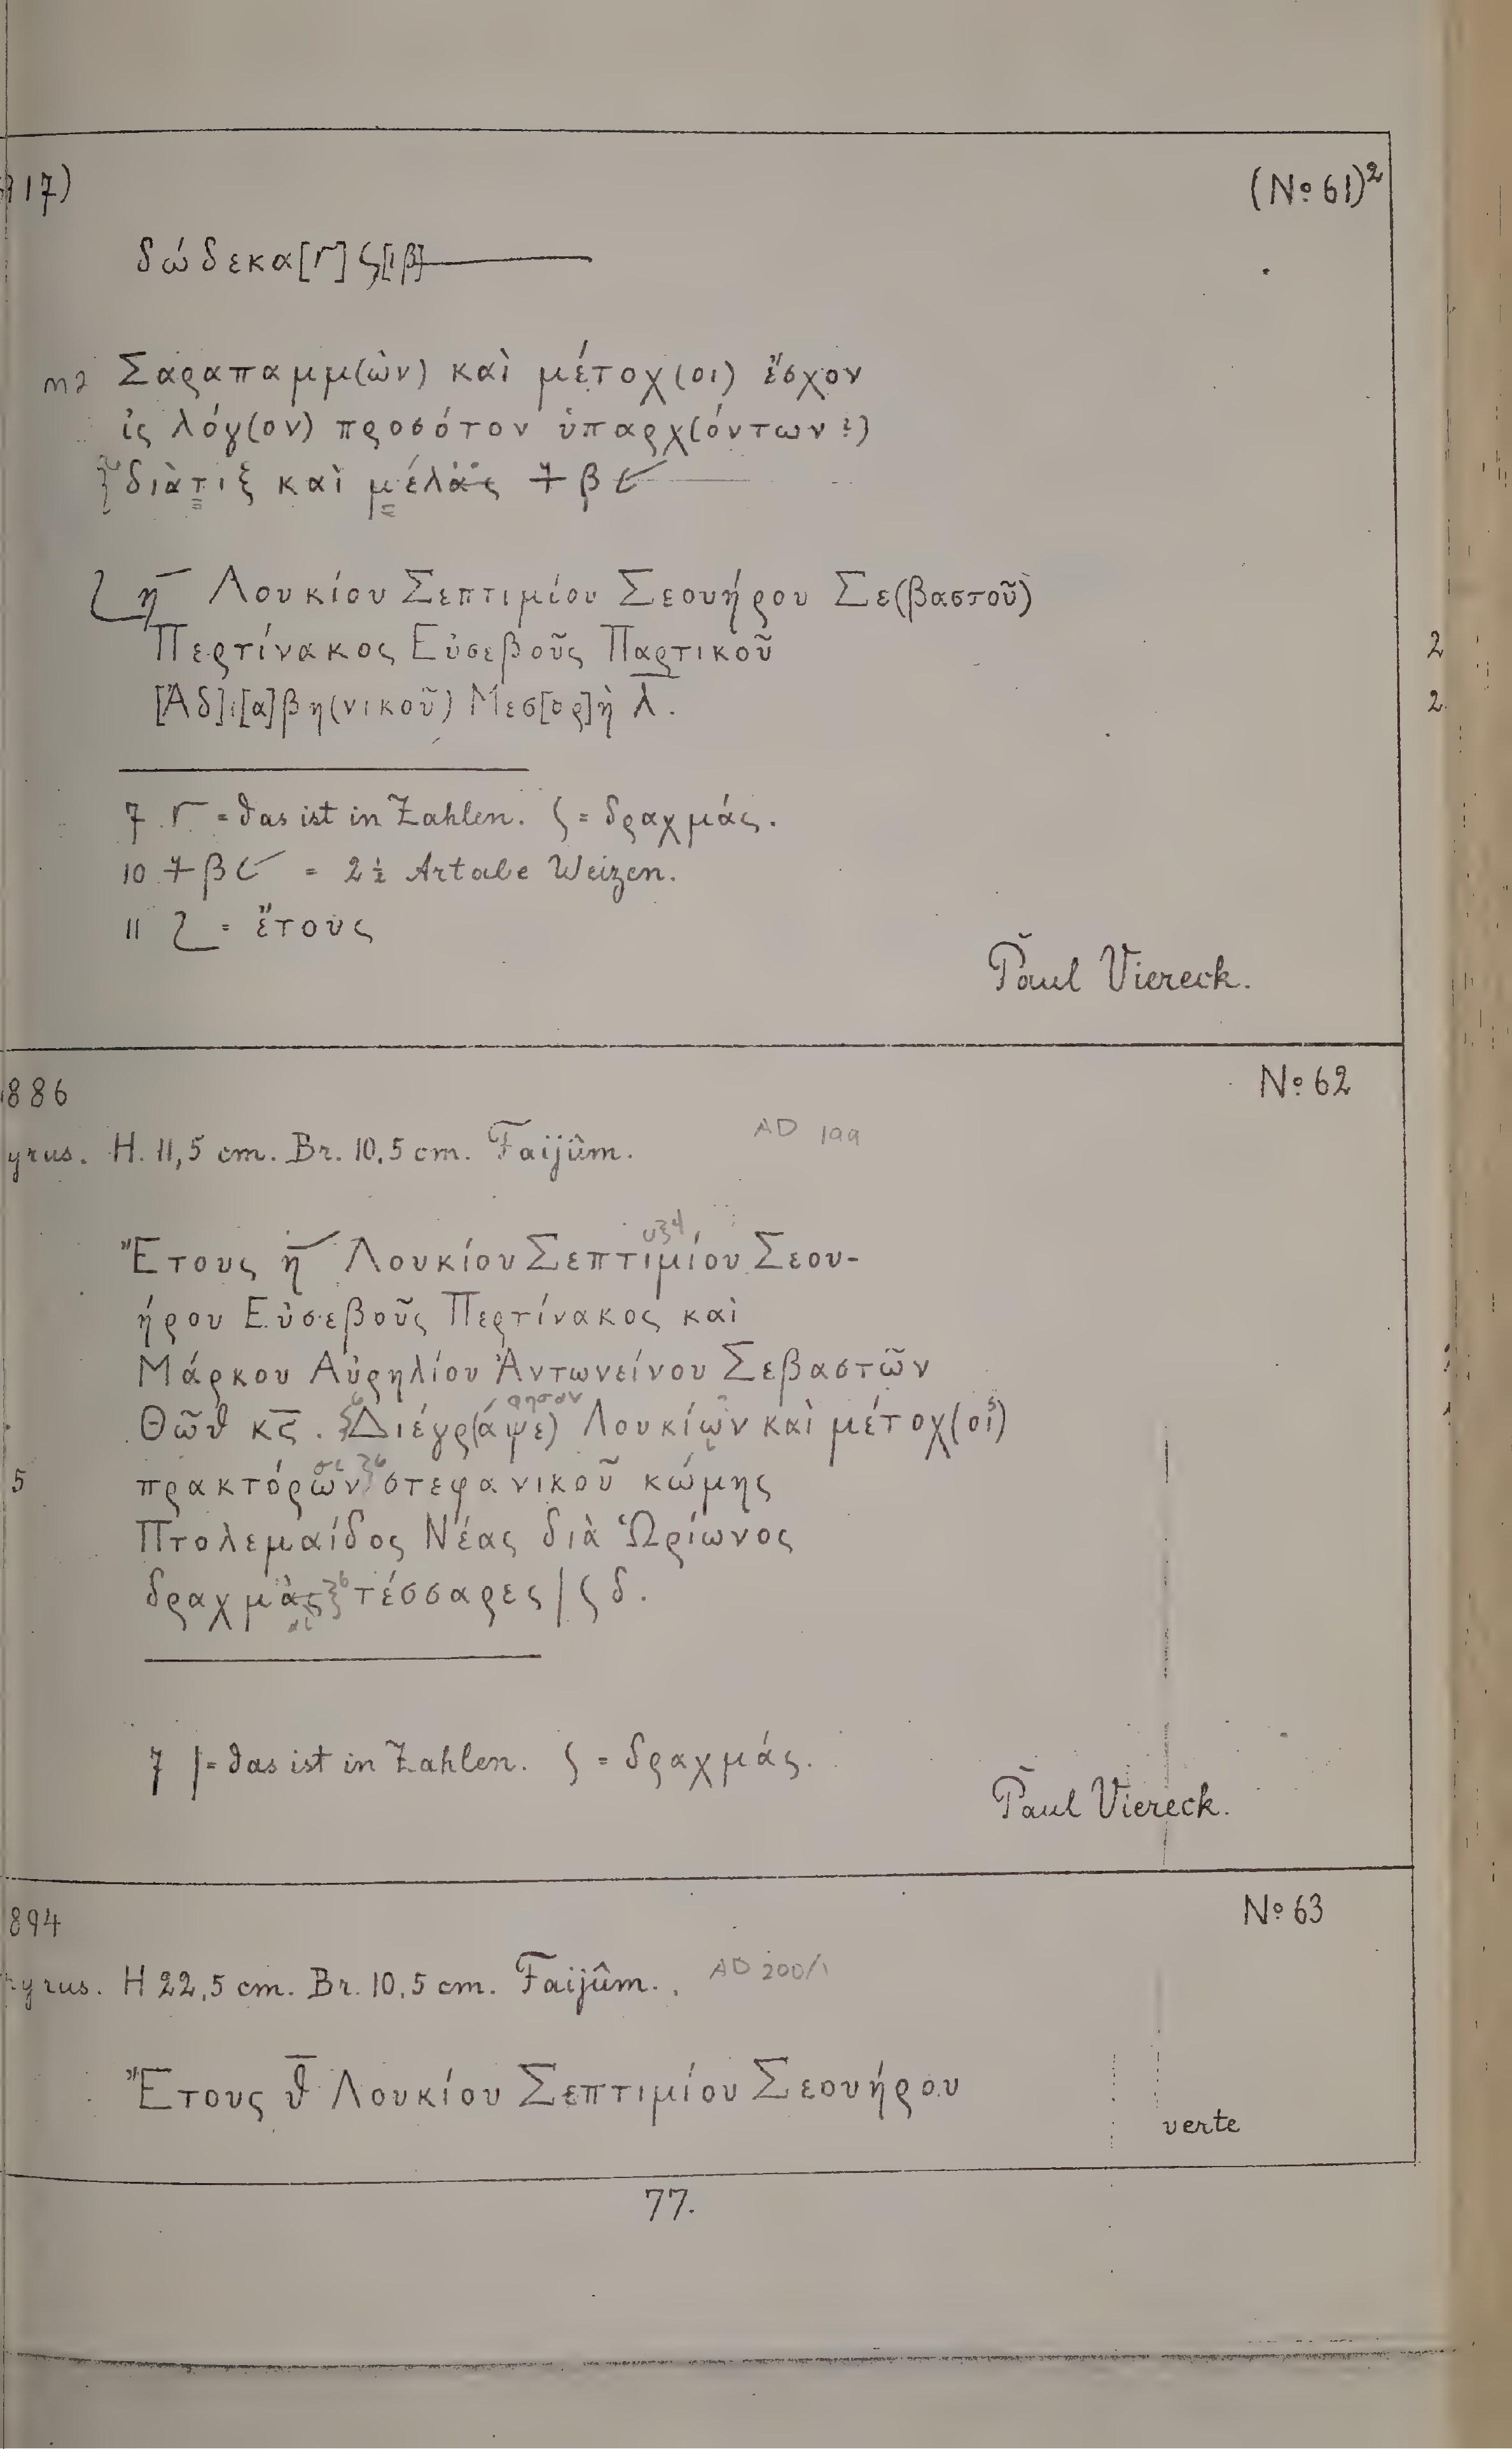 17)
(No 61)²
δώδεκα[Γ] ϛ[ιβ]
m2 Σαραπαμμ(ὼν) καὶ μέτοχ(οι) ἔσχον
ἰς λόγ(ον) προσότον ὑπαρχ(όντων?)
διὰτιξ καὶ μέλας
η Λουκίου Σεπτιμίου Σεουήρου Σε(βαστοῦ)
Περτίνακος Εὐσεβοῦς Παρτικοῦ
[Ἀδ]ι[α]βη(νικοῦ) Μεσ[ορ]ὴ λ̅.
7 Γ = das ist in Zahlen. ϛ = δραχμάς.
10 = 2½ Artabe Weizen.
11 = ἔτους
Paul Viereck.
886
No 62
yrus. H. 11,5 cm. Br. 10,5 cm. Faijûm.
AD 199
Ἔτους η̅ Λουκίου Σεπτιμίου Σεου-
ήρου Εὐσεβοῦς Περτίνακος καὶ
Μάρκου Αὐρηλίου Ἀντωνείνου Σεβαστῶν
Θῶθ κϛ̅. Διέγρ(άψε) Λουκίων καὶ μέτοχ(οι)
5 πρακτόρων στεφανικοῦ κώμης
Πτολεμαίδος Νέας διὰ Ὡρίωνος
δραχμὰς τέσσαρες / ϛ δ.
7 / = das ist in Zahlen. ϛ = δραχμάς.
Paul Viereck.
894
No 63
yrus. H 22,5 cm. Br. 10,5 cm. Faijûm.
AD 200/1
Ἔτους θ̅ Λουκίου Σεπτιμίου Σεουήρου
verte
77.